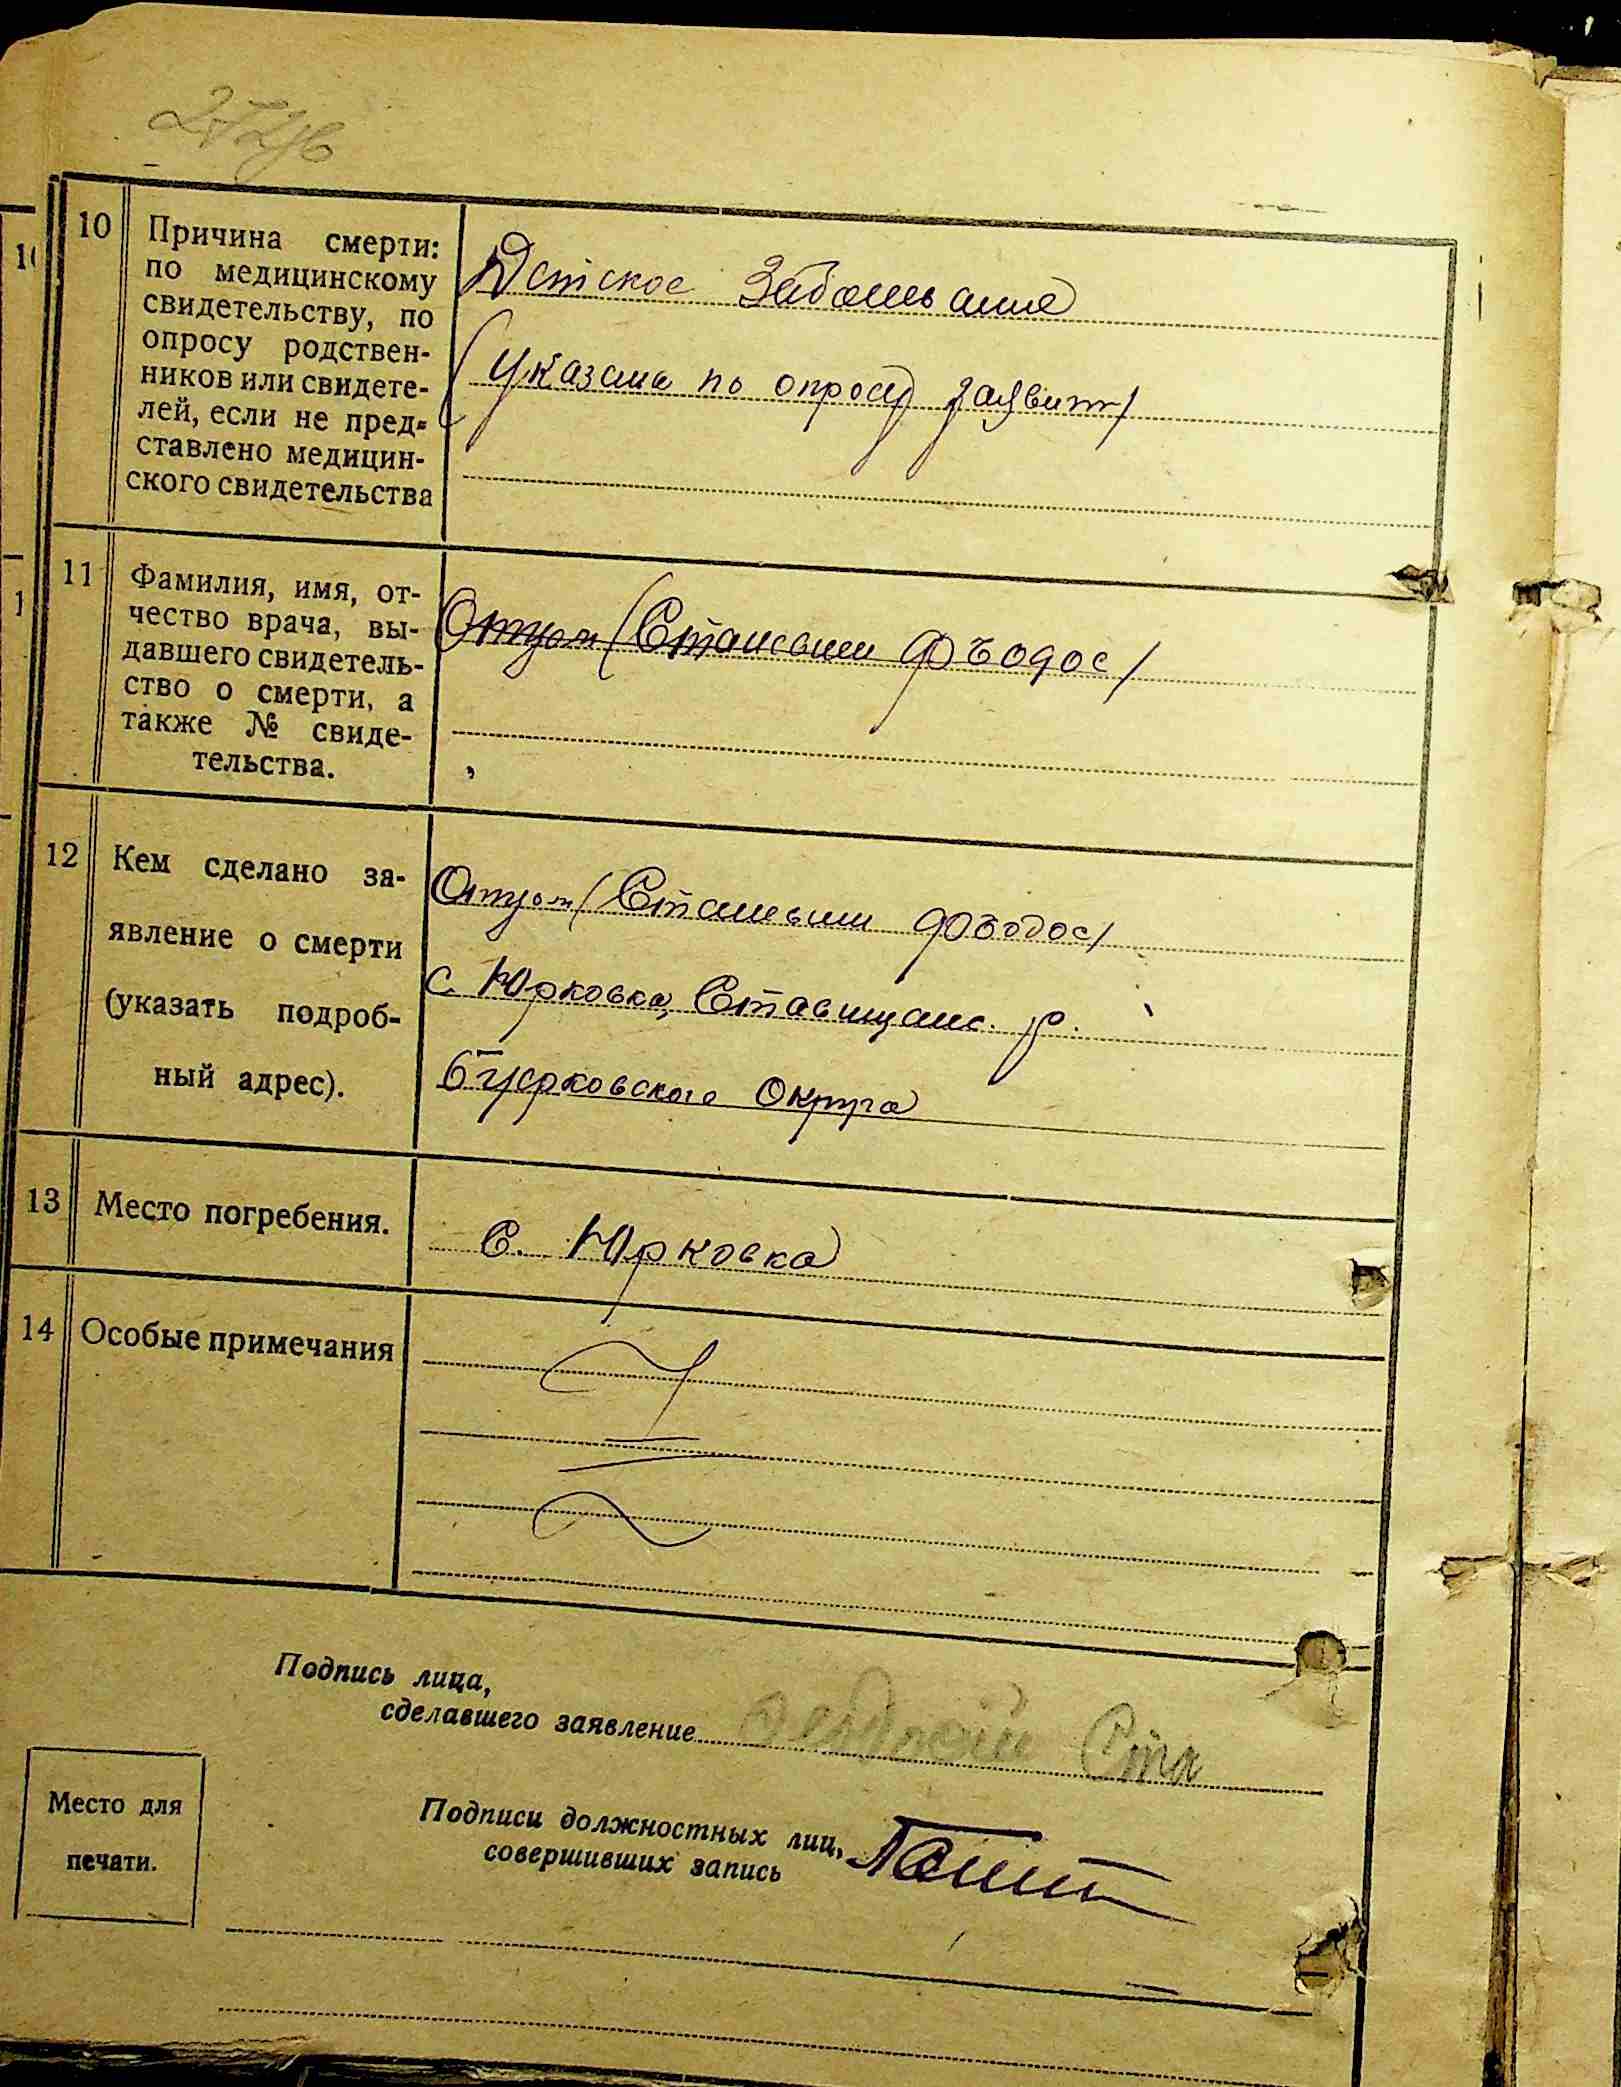 10
Причина смерти:
по медицинскому
свидетельству, по
опросу родствен-
ников или свидете-
лей, если не пред-
ставлено медицин-
ского свидетельства
Детское
(указана по опросу заявит)
11
Фамилия, имя, от-
чество врача, вы-
давшего свидетель-
ство о смерти, а
также № свиде-
тельства.
Отцом (
12
Кем сделано за-
явление о смерти
(указать подроб-
ный адрес).
Отцом (
с. Юрковка, Ставищанс. р.
округа
13
Место погребения.
С. Юрковка
14
Особые примечания
Подпись лица,
сделавшего заявление
Место для
печати.
Подписи должностных лиц,
совершивших запись